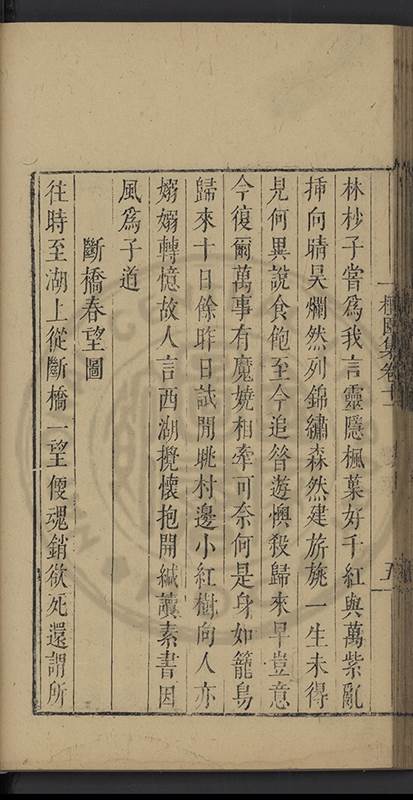 檀園集卷十一
五
林杪子嘗為我言靈隱楓葉好千紅與萬紫亂
揷向晴昊爛然列錦繡森然建旂旐一生未得
見何異說食飽至今追昔遊懊殺歸來早豈意
今復爾萬事有魔嬈相牽可奈何是身如籠鳥
歸來十日餘昨日試閒眺村邊小紅樹向人亦
嫋嫋轉憶故人言西湖攪懷抱開緘讀素書因
風為子道
斷橋春望圖
往時至湖上從斷橋一望便魂銷欲死還謂所